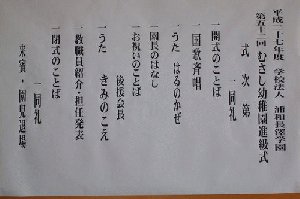 平成二十七年度 学校法人 浦和長澤学園
第五十二回 むさし幼稚園進級式
式次第
一同礼
一開式のことば
一国歌斉唱
一うた はるのかぜ
一園長のはなし
一お祝いのことば
後援会長
一うた きみのこえ
一教職員紹介・担任発表
一閉式のことば
一同礼
来賓・園児退場